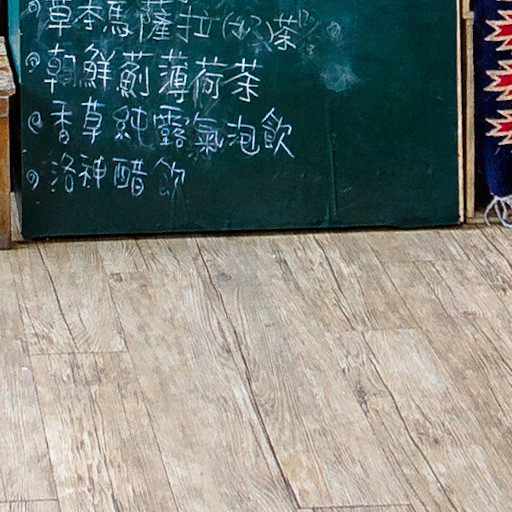 草本馬薩拉(ほっ)茶
朝鮮薊薄荷茶
香草純露氣泡飲
洛神醋飲